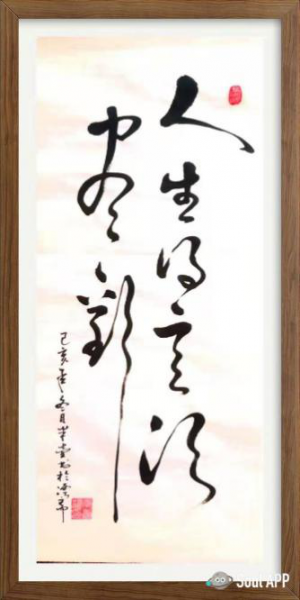 人生得意須
盡歡
己亥年冬月
Soul APP